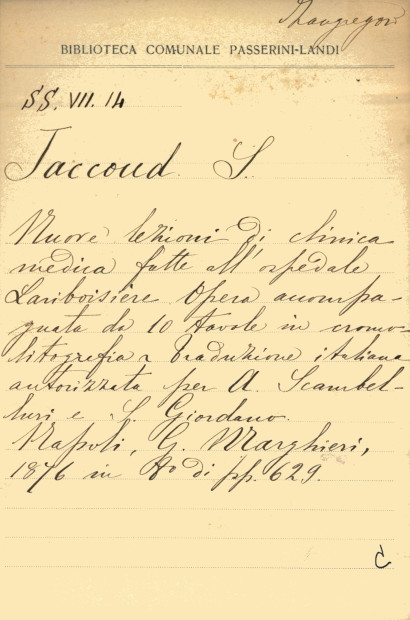 Mangregori
BIBLIOTECA COMUNALE PASSERINI-LANDI
SS. VII. 14
Jaccoud S.
Nuove lezioni di clinica
medica fatte all'ospedale
Lariboisiere Opera accompa-
gnata da 10 tavole in cromo-
litografia Traduzione italiana
autorizzata per A. Scambel-
luri e S. Giordano.
Napoli, G. Marghieri,
1876 in 8º di pp. 629.
C